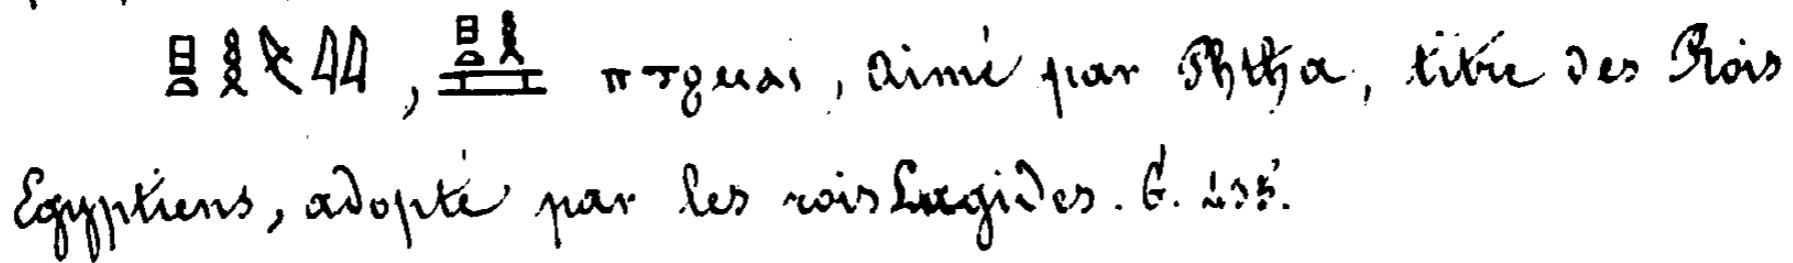 𓊪𓏏𓎛𓌻𓇌, 𓊪𓏏𓎛𓈘 ⲡⲧϩⲙⲁⲓ, aimé par Phtha, titre des Rois
Egyptiens, adopté par les rois Lagides. G.